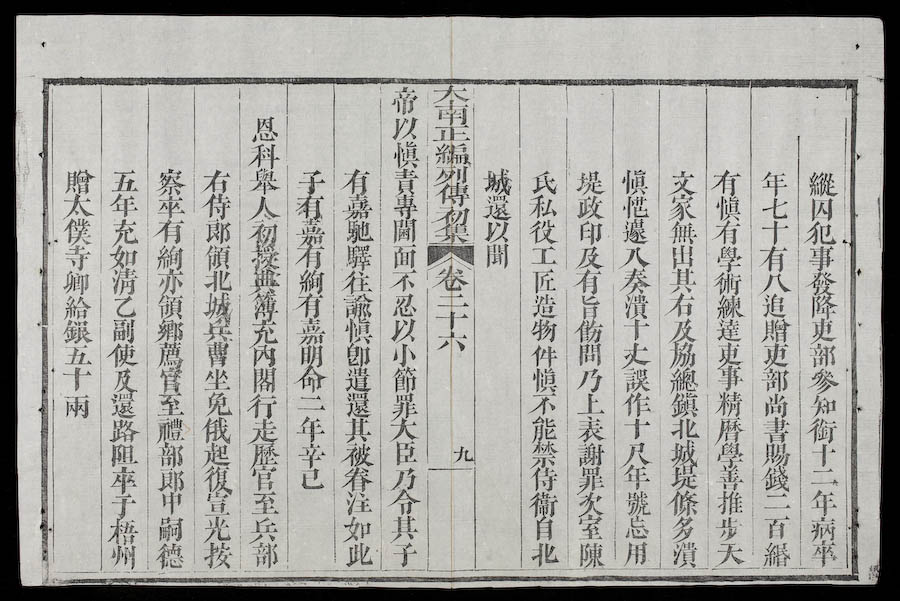 縱囚犯事發降吏部參知銜十二年病卒
年七十有八追贈吏部尚書賜錢二百緡
有愼有學術練達吏事精曆學善推步天
文家無出其右及協總鎭北城堤條多潰
愼惶遽入奏潰十丈誤作十尺年號忘用
堤政印及有旨飭問乃上表謝罪次室陳
氏私役工匠造物件愼不能禁侍衞自北
城還以聞
大南正編列傳初集 卷二十六 九
帝以愼責專閫面不忍以小節罪大臣乃令其子
有嘉馳驛往諭愼卽遣還其被眷注如此
子有嘉有絢有嘉明命二年辛巳
恩科舉人初授典簿充內閣行走歷官至兵部
右侍郎領北城兵曹坐免俄起復宣光按
察卒有絢亦領鄉薦官至禮部郎中嗣德
五年充如淸乙副使及還路阻卒于梧州
贈太僕寺卿給銀五十兩